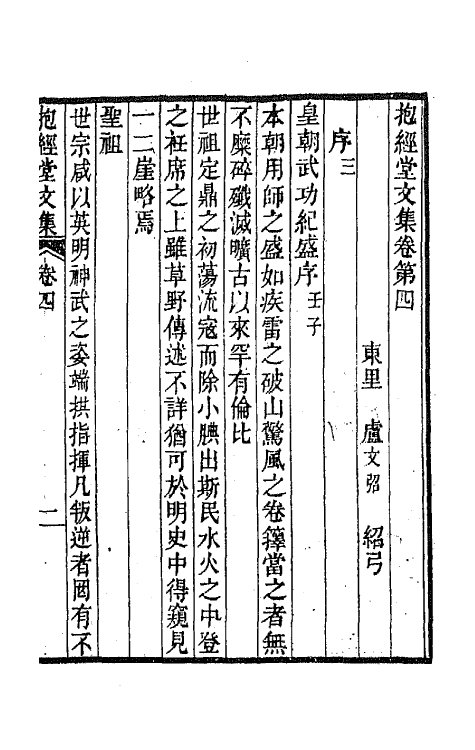 抱經堂文集卷第四
東里 盧文弨 紹弓
序三
皇朝武功紀盛序壬子
本朝用師之盛如疾雷之破山驚風之卷籜當之者無
不糜碎殲滅曠古以來罕有倫比
世祖定鼎之初蕩流寇而除小腆出斯民水火之中登
之袵席之上雖草野傳述不詳猶可於明史中得窺見
一二崖略焉
聖祖
世宗咸以英明神武之姿端拱指揮凡叛逆者罔有不
抱經堂文集 卷四 一